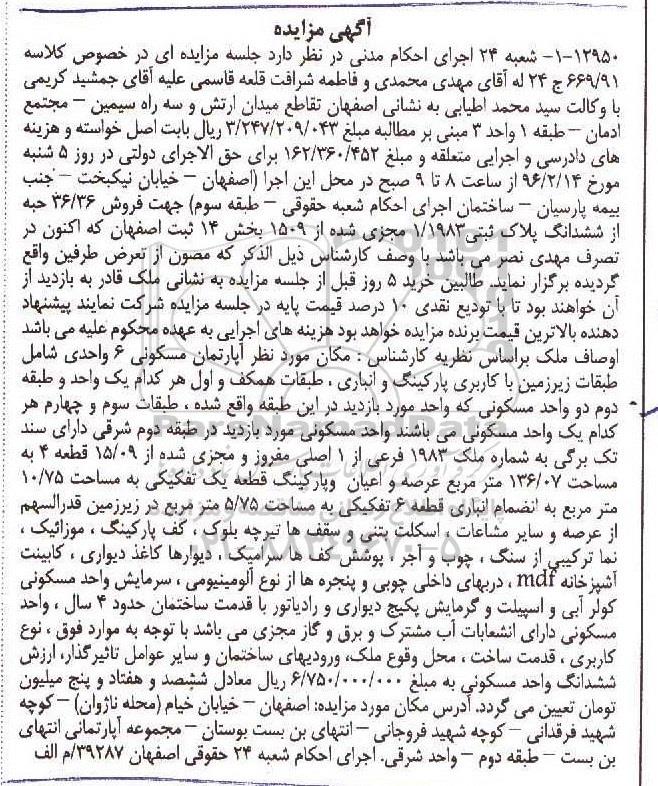 آگهی مزایده
۱۲۹۵۰-۱- شعبه ۲۴ اجرای احکام مدنی در نظر دارد جلسه مزایده ای در خصوص کلاسه
۶۶۹/۹۱ ج ۲۴ له آقای مهدی محمدی و فاطمه شرافت قلعه قاسمی علیه آقای جمشید کریمی
با وکالت سید محمد اطیابی به نشانی اصفهان تقاطع میدان ارتش و سه راه سیمین – مجتمع
ادمان – طبقه ۱ واحد ۳ مبنی بر مطالبه مبلغ ۳/۲۴۷/۲۰۹/۰۴۳ ریال بابت اصل خواسته و هزینه
های دادرسی و اجرایی متعلقه و مبلغ ۱۶۲/۳۶۰/۴۵۲ برای حق الاجرای دولتی در روز ۵ شنبه
مورخ ۹۶/۲/۱۴ از ساعت ۸ تا ۹ صبح در محل این اجرا (اصفهان – خیابان نیکبخت – جنب
بیمه پارسیان – ساختمان اجرای احکام شعبه حقوقی – طبقه سوم) جهت فروش ۳۶/۳۶ حبه
از ششدانگ پلاک ثبتی ۱/۱۹۸۳ مجزی شده از ۱۵۰۹ بخش ۱۴ ثبت اصفهان که اکنون در
تصرف مهدی نصر می باشد با وصف کارشناس ذیل الذکر که مصون از تعرض طرفین واقع
گردیده برگزار نماید. طالبین خرید ۵ روز قبل از جلسه مزایده به نشانی ملک قادر به بازدید از
آن خواهند بود تا با تودیع نقدی ۱۰ درصد قیمت پایه در جلسه مزایده شرکت نمایند پیشنهاد
دهنده بالاترین قیمت برنده مزایده خواهد بود هزینه های اجرایی به عهده محکوم علیه می باشد
اوصاف ملک براساس نظریه کارشناس : مکان مورد نظر آپارتمان مسکونی ۶ واحدی شامل
طبقات زیرزمین با کاربری پارکینگ و انباری ، طبقات همکف و اول هر کدام یک واحد و طبقه
دوم دو واحد مسکونی که واحد مورد بازدید در این طبقه واقع شده ، طبقات سوم و چهارم هر
کدام یک واحد مسکونی می باشند واحد مسکونی مورد بازدید در طبقه دوم شرقی دارای سند
تک برگی به شماره ملک ۱۹۸۳ فرعی از ۱ اصلی مفروز و مجزی شده از ۱۵/۰۹ قطعه ۴ به
مساحت ۱۳۶/۰۷ متر مربع عرصه و اعیان وپارکینگ قطعه یک تفکیکی به مساحت ۱۰/۷۵
متر مربع به انضمام انباری قطعه ۶ تفکیکی به مساحت ۵/۷۵ متر مربع در زیرزمین قدرالسهم
از عرصه و سایر مشاعات ، اسکلت بتنی و سقف ها تیرچه بلوک ، کف پارکینگ ، موزائیک ،
نما ترکیبی از سنگ ، چوب و آجر ، پوشش کف ها سرامیک ، دیوارها کاغذ دیواری ، کابینت
آشپزخانه mdf ، دربهای داخلی چوبی و پنجره ها از نوع آلومینیومی ، سرمایش واحد مسکونی
کولر آبی و اسپیلت و گرمایش پکیج دیواری و رادیاتور با قدمت ساختمان حدود ۴ سال ، واحد
مسکونی دارای انشعابات آب مشترک و برق و گاز مجزی می باشد با توجه به موارد فوق ، نوع
کاربری ، قدمت ساخت ، محل وقوع ملک، ورودیهای ساختمان و سایر عوامل تاثیرگذار، ارزش
ششدانگ واحد مسکونی به مبلغ ۶/۷۵۰/۰۰۰/۰۰۰ ریال معادل ششصد و هفتاد و پنج میلیون
تومان تعیین می گردد. آدرس مکان مورد مزایده: اصفهان – خیابان خیام (محله ناژوان) – کوچه
شهید فرقدانی – کوچه شهید فروجانی – انتهای بن بست بوستان – مجموعه آپارتمانی انتهای
بن بست – طبقه دوم – واحد شرقی. اجرای احکام شعبه ۲۴ حقوقی اصفهان ۳۹۲۸۷/م الف